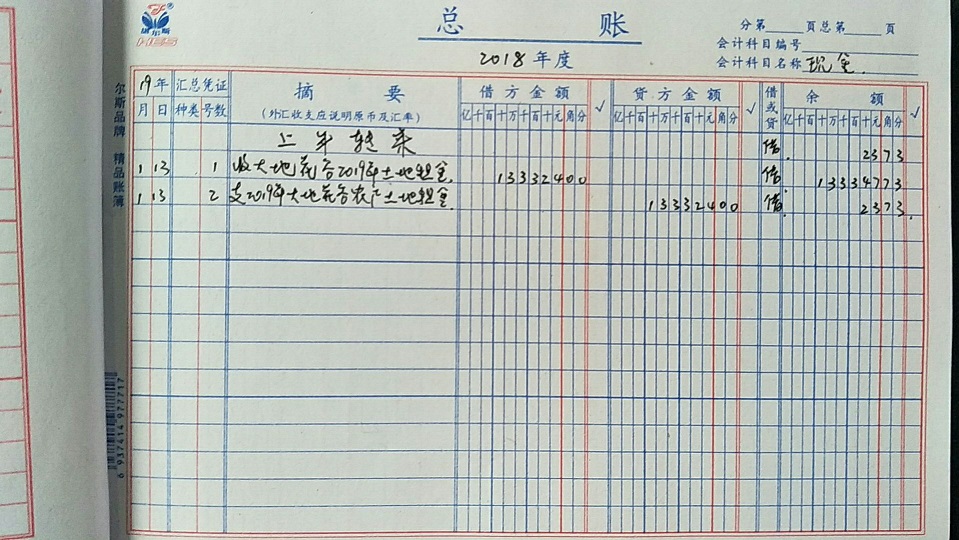 总 账
2018 年 度
分第 页总第 页
会计科目编号
会计科目名称 现金
康尔斯
HES
尔斯品牌 精品账簿
6 937414 977717
19 年 汇总凭证 摘 要 借方金额 √ 贷方金额 √ 借或贷 余 额 √
月 日 种类 号数 (外汇收支应说明原币及汇率) 亿千百十万千百十元角分 亿千百十万千百十元角分 亿千百十万千百十元角分
上年转来 借 2373
1 13 1 收大地花谷2019年土地租金 13332400 借 13334773
1 13 2 支2019年大地花谷农户土地租金 13332400 借 2373